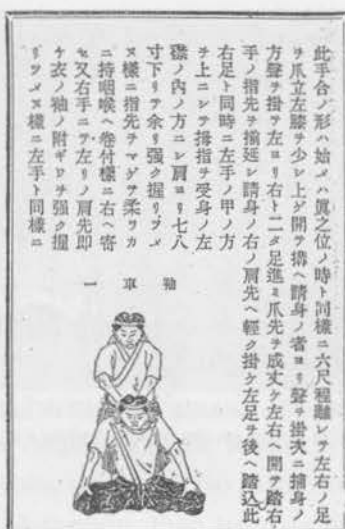 此手合ノ形ハ始メハ眞之位ノ時ト同樣ニ六尺程離レテ左右ノ足
ヲ爪立左膝ヲ少シ上ゲ開ヲ搆ヘ請身ノ者ヨリ聲ヲ掛次ニ捕身ノ
方聲ヲ掛ヶ左ヨリ右ト二タ足進ミ爪先ヲ成丈ケ左右ヘ開ヲ踏右
手ノ指先ヲ揃延シ請身ノ右ノ肩先ヘ輕ク掛ケ左足ヲ後ヘ踏込此
右足ト同時ニ左手ノ甲ノ方
ヲ上ニシテ拇指ヲ受身ノ左
襟ノ內ノ方ニシ肩ヨリ七八
寸下リテ余リ强ク握リツメ
ヌ樣ニ指先ヲマゲテ柔ワカ
ニ持咽喉ヘ卷付樣ニ右ヘ寄
セ又右手ニテ左リノ肩先卽
ケ衣ノ袖ノ附ギワヲ强ク握
リツメヌ樣ニ左手ト同樣ニ
袖車一